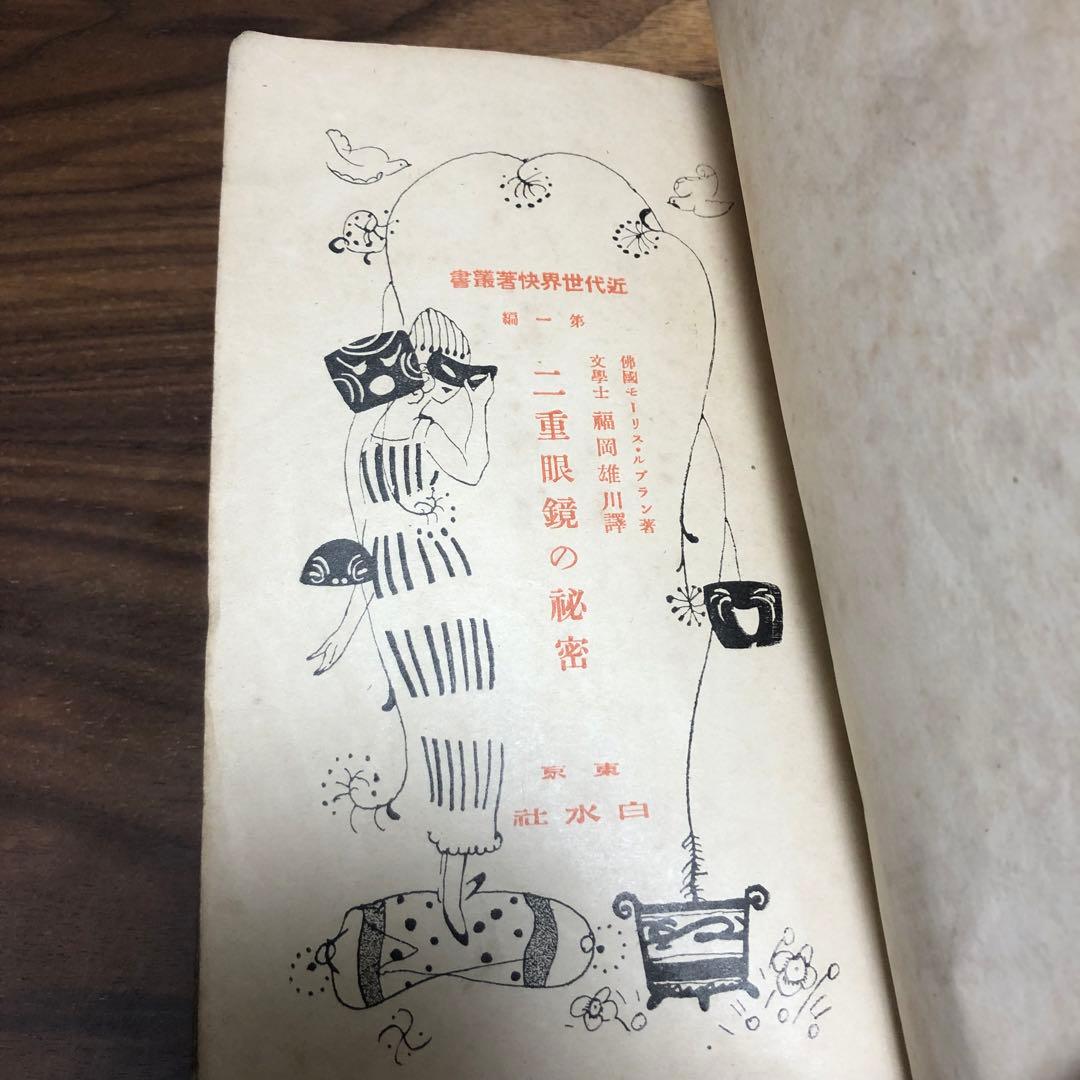 近代世界快著叢書
第一編
佛國モーリス・ルブラン著
文學士 福岡雄川譯
二重眼鏡の祕密
東京
白水社